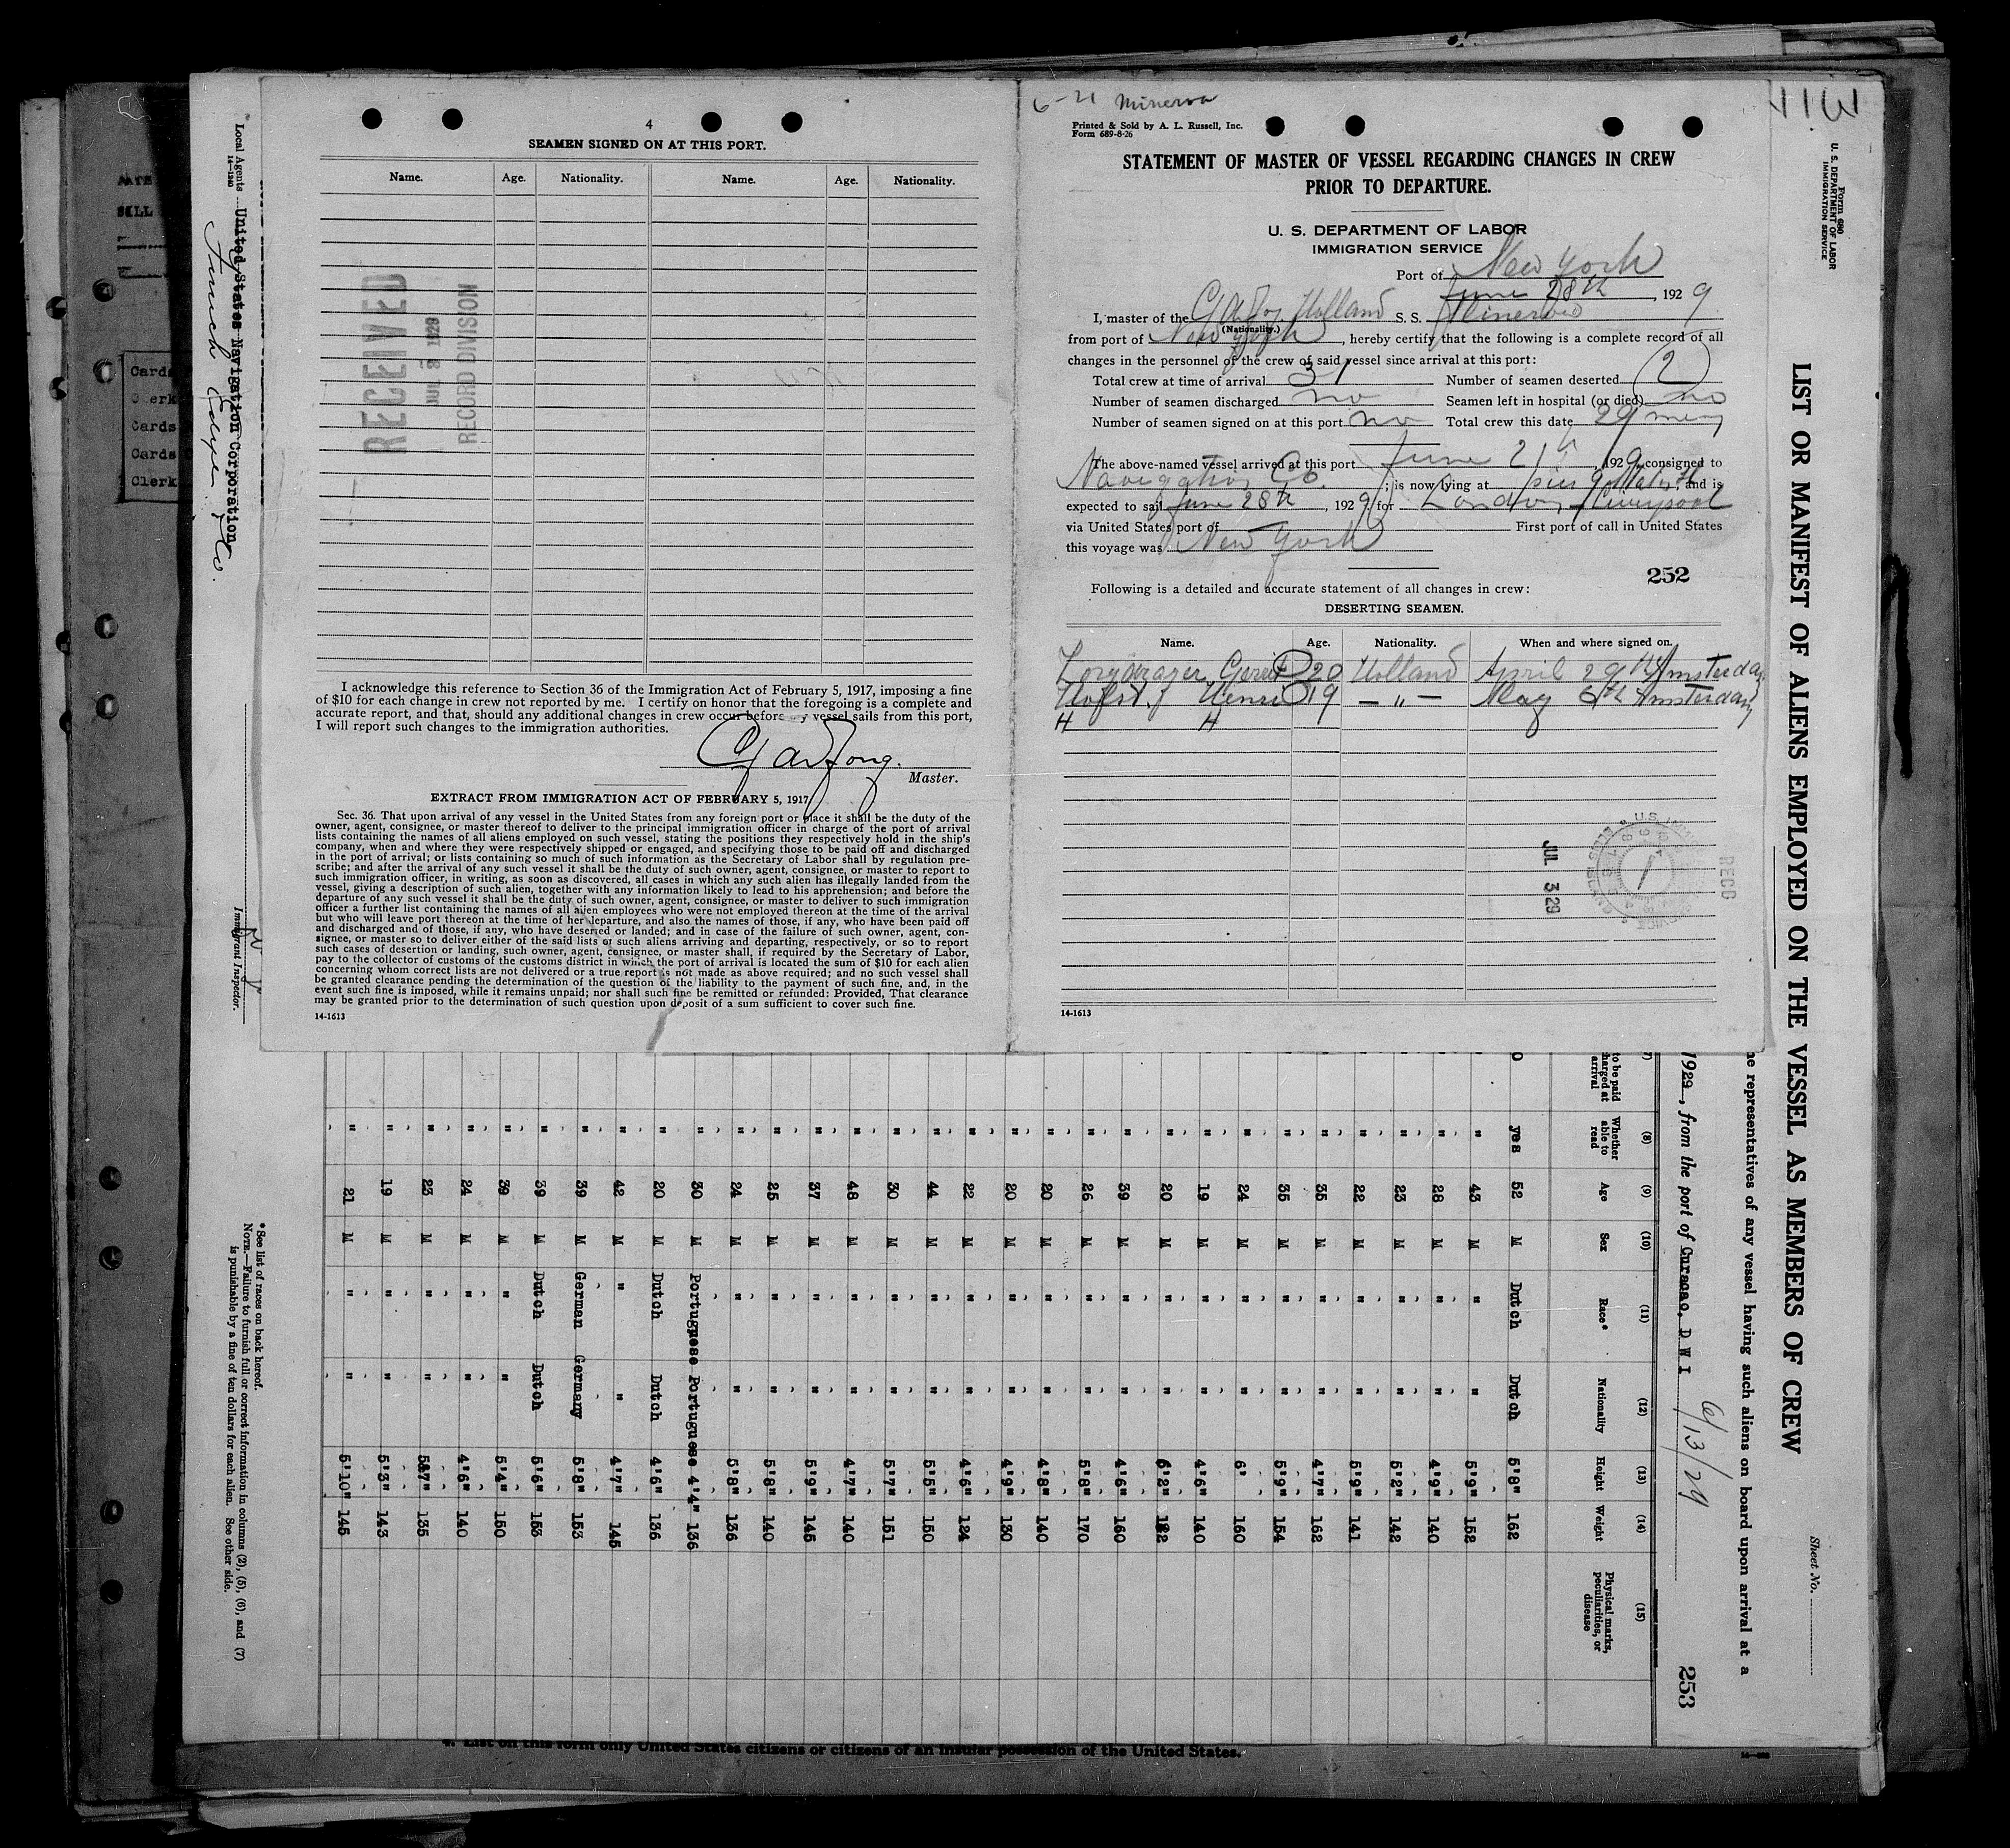 4
SEAMEN SIGNED ON AT THIS PORT.
Name. Age. Nationality. Name. Age. Nationality.
RECEIVED
JUL 3 1929
RECORD DIVISION
I acknowledge this reference to Section 36 of the Immigration Act of February 5, 1917, imposing a fine
of $10 for each change in crew not reported by me. I certify on honor that the foregoing is a complete and
accurate report, and that, should any additional changes in crew occur before my vessel sails from this port,
I will report such changes to the immigration authorities.
Master.
EXTRACT FROM IMMIGRATION ACT OF FEBRUARY 5, 1917
Sec. 36. That upon arrival of any vessel in the United States from any foreign port or place it shall be the duty of the
owner, agent, consignee, or master thereof to deliver to the principal immigration officer in charge of the port of arrival
lists containing the names of all aliens employed on such vessel, stating the positions they respectively hold in the ship's
company, when and where they were respectively shipped or engaged, and specifying those to be paid off and discharged
in the port of arrival; or lists containing so much of such information as the Secretary of Labor shall by regulation pre-
scribe; and after the arrival of any such vessel it shall be the duty of such owner, agent, consignee, or master to report to
such immigration officer, in writing, as soon as discovered, all cases in which any such alien has illegally landed from the
vessel, giving a description of such alien, together with any information likely to lead to his apprehension; and before the
departure of any such vessel it shall be the duty of such owner, agent, consignee, or master to deliver to such immigration
officer a further list containing the names of all alien employees who were not employed thereon at the time of the arrival
but who will leave port thereon at the time of her departure, and also the names of those, if any, who have been paid off
and discharged and of those, if any, who have deserted or landed; and in case of the failure of such owner, agent, con-
signee, or master so to deliver either of the said lists of such aliens arriving and departing, respectively, or so to report
such cases of desertion or landing, such owner, agent, consignee, or master shall, if required by the Secretary of Labor,
pay to the collector of customs of the customs district in which the port of arrival is located the sum of $10 for each alien
concerning whom correct lists are not delivered or a true report is not made as above required; and no such vessel shall
be granted clearance pending the determination of the question of the liability to the payment of such fine, and, in the
event such fine is imposed, while it remains unpaid; nor shall such fine be remitted or refunded: Provided, That clearance
may be granted prior to the determination of such question upon deposit of a sum sufficient to cover such fine.
14-1613
6-21 Minerva
Printed & Sold by A. L. Russell, Inc.
Form 689-8-26
STATEMENT OF MASTER OF VESSEL REGARDING CHANGES IN CREW
PRIOR TO DEPARTURE.
U. S. DEPARTMENT OF LABOR
IMMIGRATION SERVICE
Port of New York
June 28th, 1929
I, master of the Holland S. S. Minerva
(Nationality.)
from port of New York, hereby certify that the following is a complete record of all
changes in the personnel of the crew of said vessel since arrival at this port:
Total crew at time of arrival 31 Number of seamen deserted 2
Number of seamen discharged no Seamen left in hospital (or died) no
Number of seamen signed on at this port no Total crew this date 29 men
The above-named vessel arrived at this port June 21, 1929, consigned to
Navigation Co.; is now lying at pier and is
expected to sail June 28th, 1929, for London Liverpool
via United States port of First port of call in United States
this voyage was New York
252
Following is a detailed and accurate statement of all changes in crew:
DESERTING SEAMEN.
Name. Age. Nationality. When and where signed on.
Gerrit 20 Holland April 29th Amsterdam
19 — " — May 6th Amsterdam
H H
JUL 3 29
RECD
14-1613
Form 680
U. S. DEPARTMENT OF LABOR
IMMIGRATION SERVICE
LIST OR MANIFEST OF ALIENS EMPLOYED ON THE VESSEL AS MEMBERS OF CREW
Sheet No.
he representatives of any vessel having such aliens on board upon arrival at a
1929, from the port of Curacao, D W I 6/13/29
253
(7) (8) (9) (10) (11) (12) (13) (14) (15)
to be paid
charged at
arrival
Whether
able to
read
Age Sex Race* Nationality Height Weight
Physical marks,
peculiarities, or
disease
yes 52 M Dutch Dutch 5'8" 162
" 43 M " " 5'9" 152
" 28 M " " 4'9" 140
" 23 M " " 5'2" 142
" 22 M " " 5'9" 141
" 35 M " " 4'7" 162
" 35 M " " 5'9" 154
" 24 M " " 6' 160
" 19 M " " 4'6" 140
" 20 M " " 6'2"
" 39 M " " 4'6" 160
" 26 M " " 5'8" 170
" 20 M " " 4'8" 140
" 20 M " " 4'9" 130
" 22 M " " 4'6" 124
" 44 M " " 5'5" 150
" 30 M " " 5'7" 151
" 48 M " " 4'7" 140
" 37 M " " 5'9" 145
" 25 M " " 5'8" 140
" 24 M " " 5'8" 136
" 30 M Portuguese Portuguese 4'4" 136
" 20 M Dutch Dutch 4'6" 136
" 42 M " " 4'7" 145
" 39 M German Germany 5'8" 153
" 39 M Dutch Dutch 5'6" 153
" 39 M " " 5'4" 150
" 24 M " " 4'6" 140
" 23 M " " 5'7" 135
" 19 M " " 5'3" 143
" 21 M " " 5'10" 145
*See list of races on back hereof.
NOTE.—Failure to furnish full or correct information in columns (2), (5), (6), and (7)
is punishable by a fine of ten dollars for each alien. See other side.
Local Agents United States Navigation Corporation,
14-1240
Funch Edye Co.
Immigrant Inspector.
Cards
Clerk
Cards
Cards
Clerk
4. List on this form only United States citizens or citizens of an insular possession of the United States.